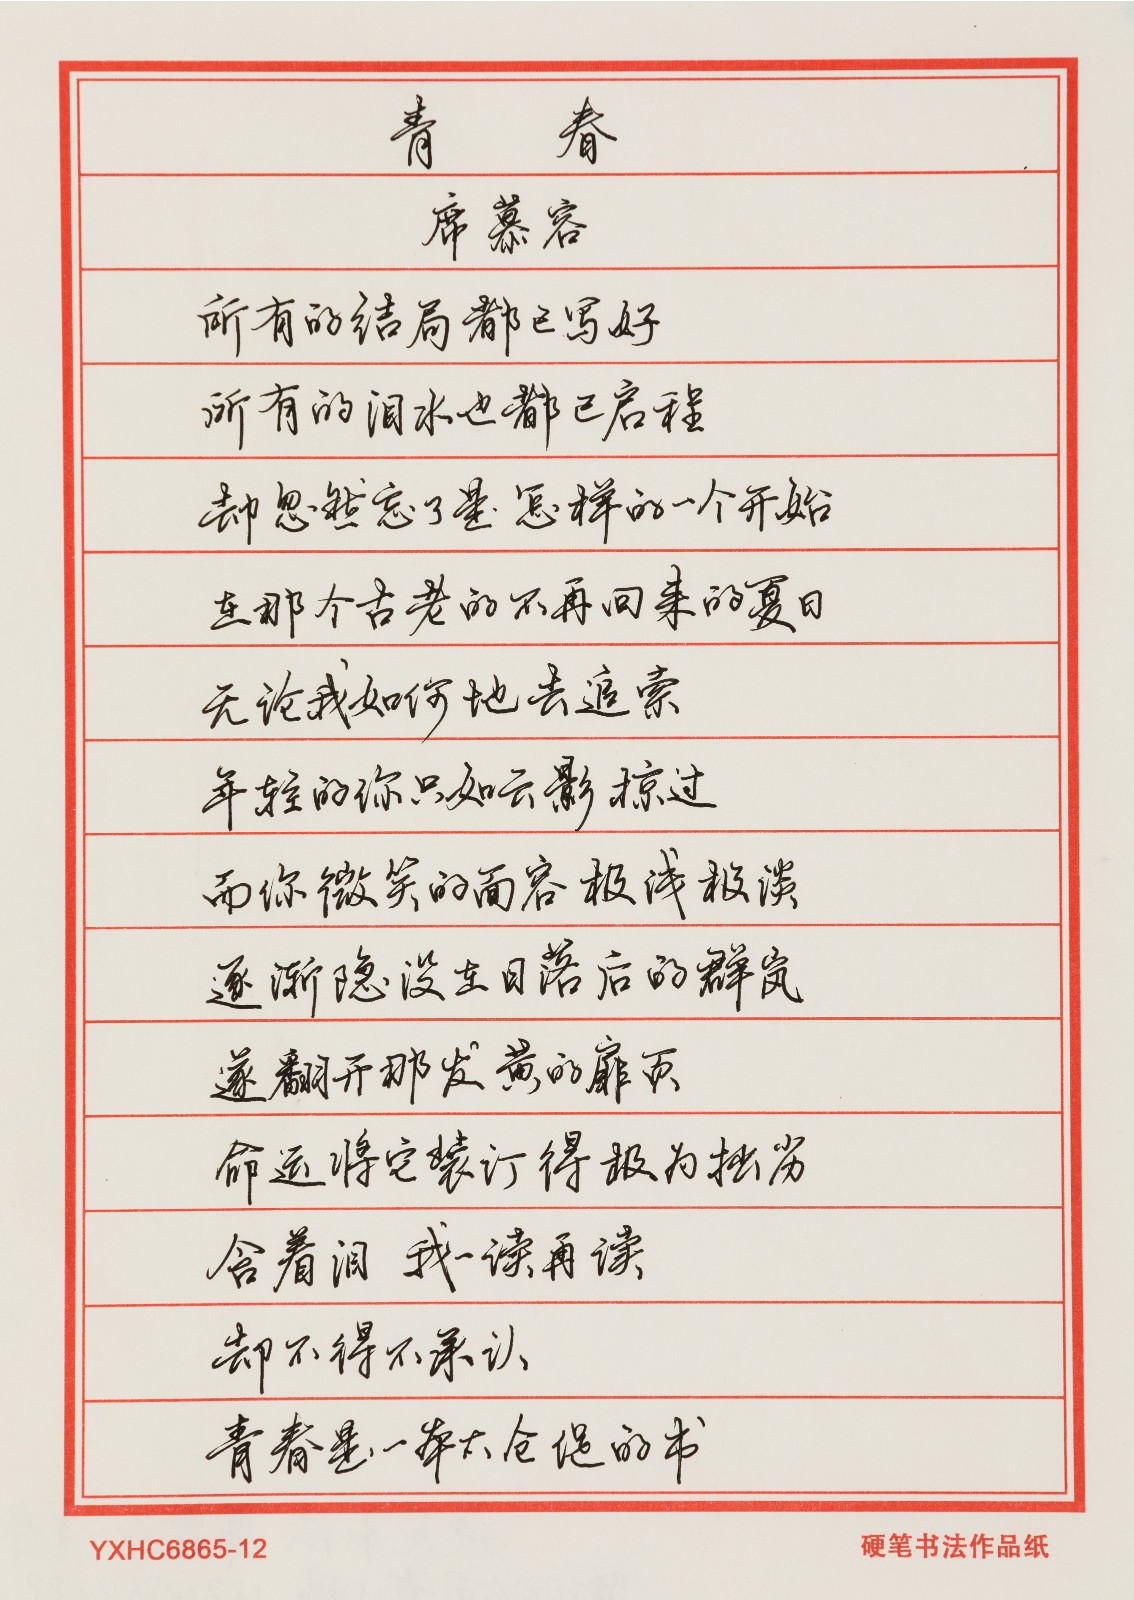 青春
席慕容
所有的结局都已写好
所有的泪水也都已启程
却忽然忘了是怎样的一个开始
在那个古老的不再回来的夏日
无论我如何地去追索
年轻的你只如云影掠过
而你微笑的面容极浅极淡
逐渐隐没在日落后的群岚
遂翻开那发黄的扉页
命运将它装订得极为拙劣
含着泪 我一读再读
却不得不承认
青春是一本太仓促的书
YXHC6865-12
硬笔书法作品纸